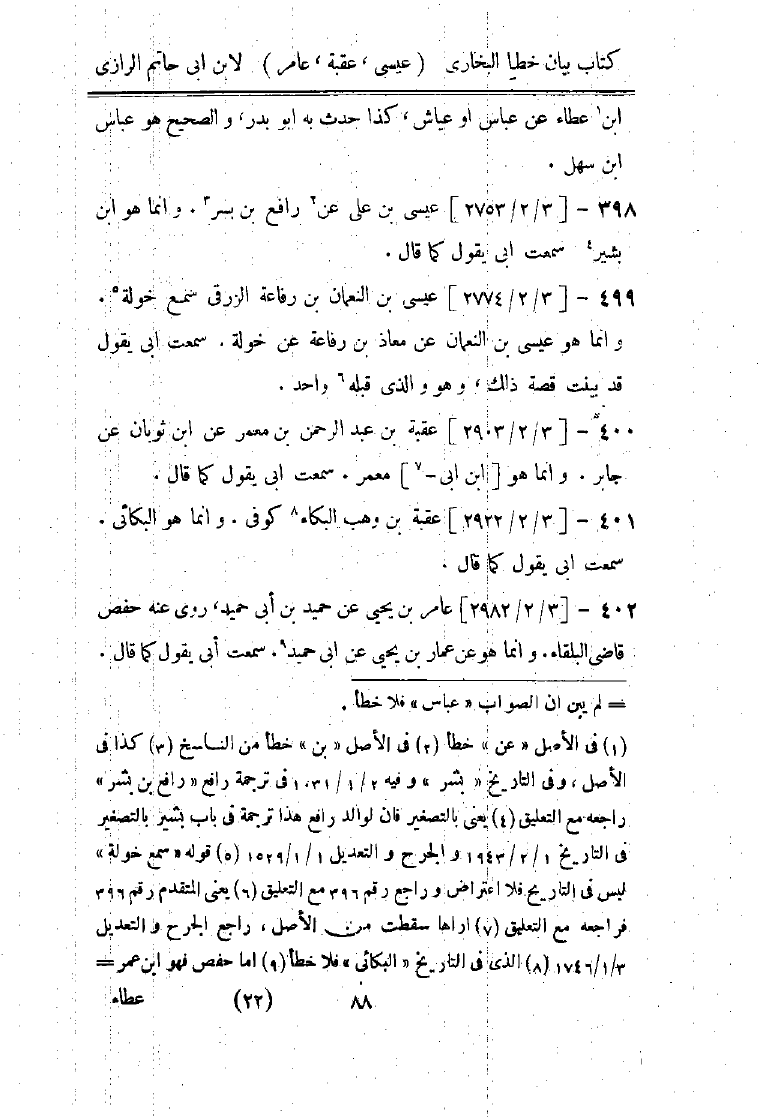 كتاب بيان خطأ البخارى ( عيسى ، عقبة ، عامر ) لابن ابى حاتم الرازى
ابن١ عطاء عن عباس او عياش ، كذا حدث به ابو بدر ، و الصحيح هو عباس
ابن سهل .
٣٩٨ – [ ٣/ ٢/ ٢٧٥٣ ] عيسى بن على عن٢ رافع بن بسر٣ . و انما هو ابن
بشير٤ سمعت ابى يقول كما قال .
٤٩٩ – [ ٣/ ٢/ ٢٧٧٤ ] عيسى بن النعمان بن رفاعة الزرقى سمع خولة٥ .
و انما هو عيسى بن النعمان عن معاذ بن رفاعة عن خولة . سمعت ابى يقول
قد بينت قصة ذلك ، و هو و الذى قبله٦ واحد .
٤٠٠ – [ ٣/ ٢/ ٢٩٠٣ ] عقبة بن عبد الرحمن بن معمر عن ابن ثوبان عن
جابر . و انما هو [ ابن ابى –٧ ] معمر . سمعت ابى يقول كما قال .
٤٠١ – [ ٣/ ٢/ ٢٩٢٢ ] عقبة بن وهب البكاء٨ كوفى . و انما هو البكائى .
سمعت ابى يقول كما قال .
٤٠٢ – [٣/ ٢/ ٢٩٨٢] عامر بن يحيى عن حميد بن أبى حميد ، روى عنه حفص
قاضى البلقاء . و انما هو عن عمار بن يحيى عن ابى حميد٩ . سمعت أبى يقول كما قال .
= لم يبين ان الصواب « عباس » فلا خطأ .
(١) فى الأصل « عن » خطأ (٢) فى الأصل « بن » خطأ من الناسخ (٣) كذا فى
الأصل ، وفى التاريخ « بشر » و فيه ٢/ ١/ ١٠٣١ فى ترجمة رافع « رافع بن بشر »
راجعه مع التعليق (٤) يعنى بالتصغير فان لوالد رافع هذا ترجمة فى باب بشير بالتصغير
فى التاريخ ١/ ٢/ ١٩٤٣ و الجرح و التعديل ١/ ١/ ١٥٢٩ (٥) قوله « سمع خولة »
ليس فى التاريخ فلا اعتراض و راجع رقم ٣٩٦ مع التعليق (٦) يعنى المتقدم رقم ٣٩٦
فراجعه مع التعليق (٧) اراها سقطت من الأصل ، راجع الجرح و التعديل
٣/ ١/ ١٧٤٦ (٨) الذى فى التاريخ « البكائى » فلا خطأ (٩) اما حفص فهو ابن عمر =
٨٨ (٢٢) عطاء